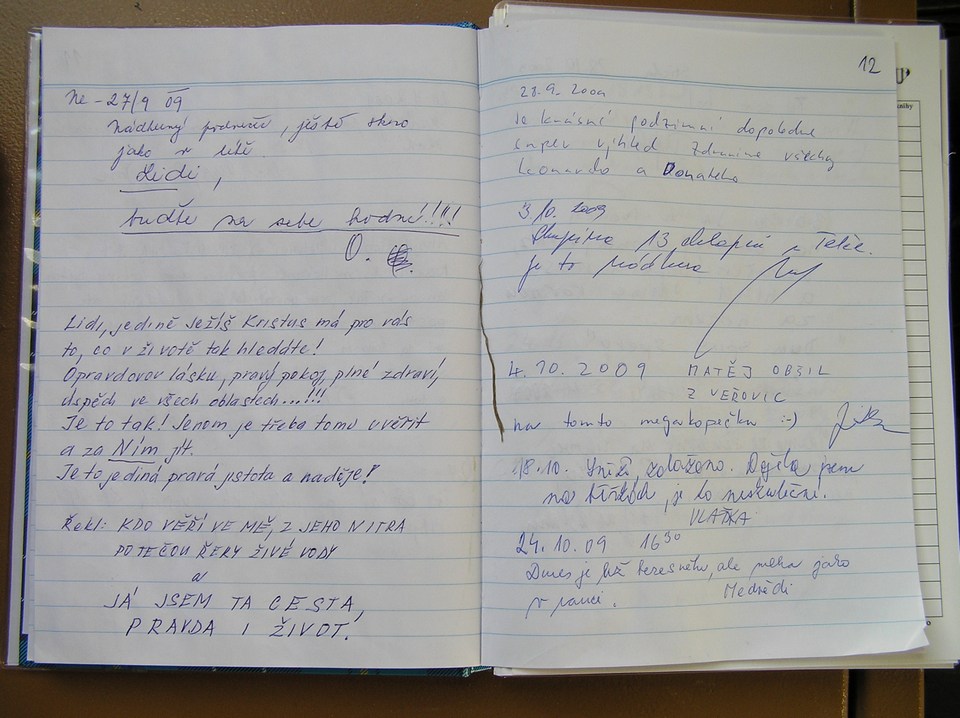 Ne - 27/9 09
Nádherný podzim, ještě skoro
jako v létě.
Lidi,
buďte na sebe hodní!!!!
O.
Lidi, jedině Ježíš Kristus má pro vás
to, co v životě tak hledáte!
Opravdovou lásku, pravý pokoj, plné zdraví,
úspěch ve všech oblastech...!!!
Je to tak! Jenom je třeba tomu uvěřit
a za Ním jít.
Je to jediná pravá jistota a naděje!
Řekl: KDO VĚŘÍ VE MĚ, Z JEHO NITRA
POTEČOU ŘEKY ŽIVÉ VODY
a
JÁ JSEM TA CESTA,
PRAVDA I ŽIVOT!
12
28.9.2009
Je krásné podzimní dopoledne
super výhled Zdravíme všechny
Leonardo a Donatello
3.10. 2009
Skupina 13 chlapů z Telče.
je to nádhera
4.10.2009 MATĚJ OBZIL
Z VEŘOVIC
na tomto megakopečku :-)
18.10. Sníh, zataženo. Došla jsem
na běžkách, je to neskutečné.
VLAĎKA
24.10.09 16 30
Dnes je už beze sněhu, ale mlha jako
v pauci. Medvědi